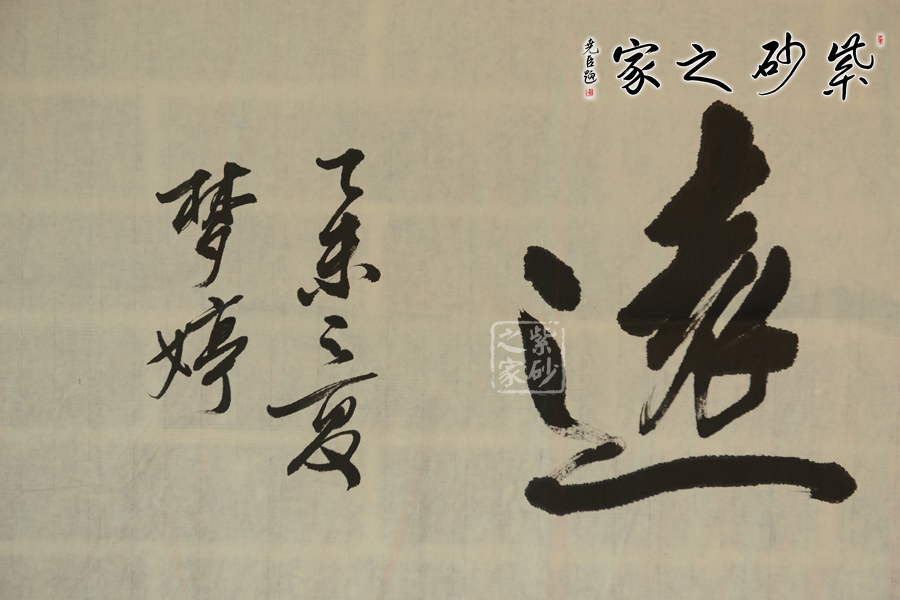 紫砂之家
尧臣题
遠
乙未之夏
梦婷
紫砂
之家